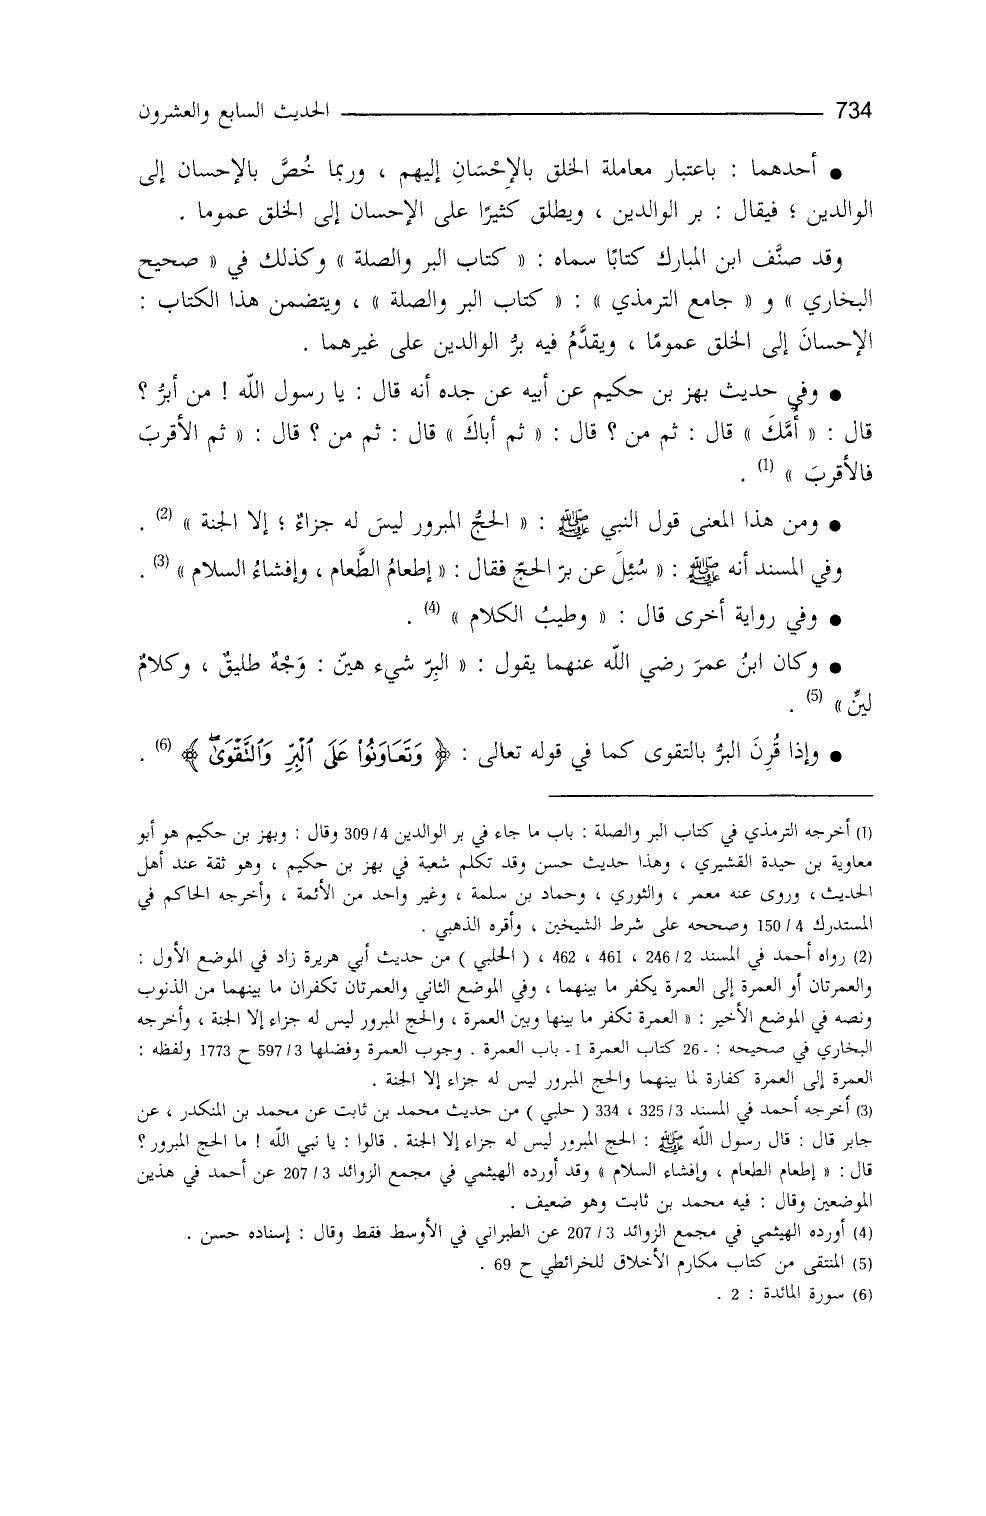 734 الحديث السابع والعشرون
● أحدهما : باعتبار معاملة الخلق بالإِحْسَانِ إليهم ، وربما خُصَّ بالإحسان إلى
الوالدين ؛ فيقال : بر الوالدين ، ويطلق كثيرًا على الإحسان إلى الخلق عموما .
وقد صنَّف ابن المبارك كتابًا سماه : « كتاب البر والصلة » وكذلك في « صحيح
البخاري » و « جامع الترمذي » : « كتاب البر والصلة » ، ويتضمن هذا الكتاب :
الإحسانَ إلى الخلق عمومًا ، ويقدَّمُ فيه برُّ الوالدين على غيرهما .
● وفي حديث بهز بن حكيم عن أبيه عن جده أنه قال : يا رسول اللّه ! من أبرُّ ؟
قال : « أُمَّكَ » قال : ثم من ؟ قال : « ثم أباكَ » قال : ثم من ؟ قال : « ثم الأقربَ
فالأقربَ » (1) .
● ومن هذا المعنى قول النبي ﷺ : « الحجُّ المبرور ليسَ له جزاءٌ ؛ إلا الجنة » (2) .
وفي المسند أنه ﷺ : « سُئِلَ عن برّ الحجّ فقال : « إطعامُ الطَّعام ، وإفشاءُ السلام » (3) .
● وفي رواية أخرى قال : « وطيبُ الكلام » (4) .
● وكان ابنُ عمرَ رضي اللّه عنهما يقول : « البِرّ شيء هينّ : وَجْهٌ طليقٌ ، وكلامٌ
لينِّ » (5) .
● وإذا قُرِنَ البرُّ بالتقوى كما في قوله تعالى : ﴿ وَتَعَاوَنُوا۟ عَلَى ٱلْبِرِّ وَٱلنَّقْوَىٰۖ ﴾ (6) .
(1) أخرجه الترمذي في كتاب البر والصلة : باب ما جاء في بر الوالدين 309/4 وقال : وبهز بن حكيم هو أبو
معاوية بن حيدة القشيري ، وهذا حديث حسن وقد تكلم شعبة في بهز بن حكيم ، وهو ثقة عند أهل
الحديث، وروى عنه معمر ، والثوري ، وحماد بن سلمة ، وغير واحد من الأئمة ، وأخرجه الحاكم في
المستدرك 4/ 150 وصححه على شرط الشيخين ، وأقره الذهبي .
(2) رواه أحمد في المسند 2/ 246 ، 461 ، 462 ، ( الحلبي ) من حديث أبي هريرة زاد في الموضع الأول :
والعمرتان أو العمرة إلى العمرة يكفر ما بينهما ، وفي الموضع الثاني والعمرتان تكفران ما بينهما من الذنوب
ونصه في الموضع الأخير : « العمرة تكفر ما بينها وبين العمرة ، والحج المبرور ليس له جزاء إلا الجنة ، وأخرجه
البخاري في صحيحه : -26 كتاب العمرة 1- باب العمرة . وجوب العمرة وفضلها 3/ 597 ح 1773 ولفظه :
العمرة إلى العمرة كفارة لما بينهما والحج المبرور ليس له جزاء إلا الجنة .
(3) أخرجه أحمد في المسند 3/ 325 ، 334 ( حلبي ) من حديث محمد بن ثابت عن محمد بن المنكدر ، عن
جابر قال : قال رسول اللّه ﷺ : الحج المبرور ليس له جزاء إلا الجنة . قالوا : يا نبي اللّه ! ما الحج المبرور ؟
قال : « إطعام الطعام ، وإفشاء السلام » وقد أورده الهيثمي في مجمع الزوائد 3/ 207 عن أحمد في هذين
الموضعين وقال : فيه محمد بن ثابت وهو ضعيف .
(4) أورده الهيثمي في مجمع الزوائد 3/ 207 عن الطبراني في الأوسط فقط وقال : إسناده حسن .
(5) المنتقى من كتاب مكارم الأخلاق للخرائطي ح 69 .
(6) سورة المائدة : 2 .